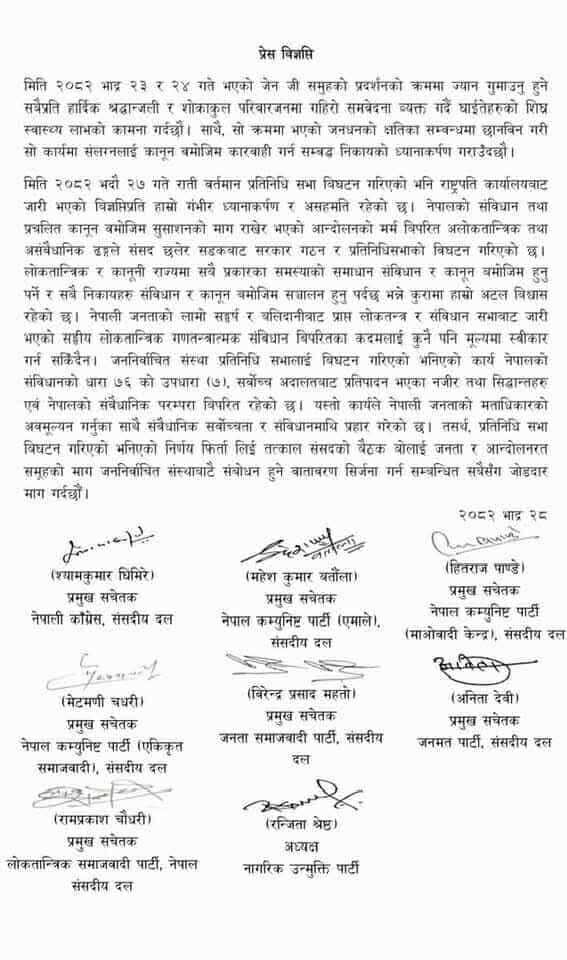 प्रेस विज्ञप्ति
मिति २०८२ भाद्र २३ र २४ गते भएको जेन जी समुहको प्रदर्शनको क्रममा ज्यान गुमाउनु हुने
सवैप्रति हार्दिक श्रद्धान्जली र शोकाकुल परिवारजनमा गहिरो समवेदना व्यक्त गर्दै घाईतेहरुको शिघ्र
स्वास्थ्य लाभको कामना गर्दछौं । साथै, सो क्रममा भएको जनधनको क्षतिका सम्वन्धमा छानविन गरी
सो कार्यमा संलग्नलाई कानून वमोजिम कारवाही गर्न सम्वद्ध निकायको ध्यानाकर्षण गराउँदछौं ।
मिति २०८२ भदौ २७ गते राती वर्तमान प्रतिनिधि सभा विघटन गरिएको भनि राष्ट्रपति कार्यालयवाट
जारी भएको विज्ञप्तिप्रति हाम्रो गंभीर ध्यानाकर्षण र असहमति रहेको छ । नेपालको संविधान तथा
प्रचलित कानून वमोजिम सुसाशनको माग राखेर भएको आन्दोलनको मर्म विपरित अलोकतान्त्रिक तथा
असंवैधानिक ढङ्गले संसद छलेर सडकवाट सरकार गठन र प्रतिनिधिसभाको विघटन गरिएको छ ।
लोकतान्त्रिक र कानूनी राज्यमा सवै प्रकारका समस्याको समाधान संविधान र कानून वमोजिम हुनु
पर्ने र सवै निकायहरु संविधान र कानून वमोजिम सञ्चालन हुनु पर्दछ भन्ने कुरामा हाम्रो अटल विश्वास
रहेको छ । नेपाली जनताको लामो सङ्घर्ष र वलिदानीवाट प्राप्त लोकतन्त्र र संविधान सभावाट जारी
भएको सङ्घीय लोकतान्त्रिक गणतन्त्रात्मक संविधान विपरितका कदमलाई कुनै पनि मूल्यमा स्वीकार
गर्न सकिँदैन । जननिर्वाचित संस्था प्रतिनिधि सभालाई विघटन गरिएको भनिएको कार्य नेपालको
संविधानको धारा ७६ को उपधारा (७), सर्वोच्च अदालतवाट प्रतिपादन भएका नजीर तथा सिद्धान्तहरु
एवं नेपालको संवैधानिक परम्परा विपरित रहेको छ । यस्तो कार्यले नेपाली जनताको मताधिकारको
अवमूल्यन गर्नुका साथै संवैधानिक सर्वोच्चता र संविधानमाथि प्रहार गरेको छ । तसर्थ, प्रतिनिधि सभा
विघटन गरिएको भनिएको निर्णय फिर्ता लिई तत्काल संसदको बैठक वोलाई जनता र आन्दोलनरत
समूहको माग जननिर्वाचित संस्थावाटै संवोधन हुने वातावरण सिर्जना गर्न सम्वन्धित सवैसँग जोडदार
माग गर्दछौं ।
२०८२ भाद्र २८
(श्यामकुमार घिमिरे)
प्रमुख सचेतक
नेपाली काँग्रेस, संसदीय दल
(महेश कुमार वर्तौला)
प्रमुख सचेतक
नेपाल कम्युनिष्ट पार्टी (एमाले),
संसदीय दल
(हितराज पाण्डे)
प्रमुख सचेतक
नेपाल कम्युनिष्ट पार्टी
(माओवादी केन्द्र), संसदीय दल
(मेटमणी चधरी)
प्रमुख सचेतक
नेपाल कम्युनिष्ट पार्टी (एकिकृत
समाजवादी), संसदीय दल
(विरेन्द्र प्रसाद महतो)
प्रमुख सचेतक
जनता समाजवादी पार्टी, संसदीय
दल
(अनिता देवी)
प्रमुख सचेतक
जनमत पार्टी, संसदीय दल
(रामप्रकाश चौधरी)
प्रमुख सचेतक
लोकतान्त्रिक समाजवादी पार्टी, नेपाल
संसदीय दल
(रन्जिता श्रेष्ठ)
अध्यक्ष
नागरिक उन्मुक्ति पार्टी